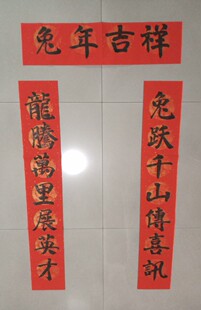 兔年吉祥
兔跃千山傳喜訊
龍騰萬里展英才